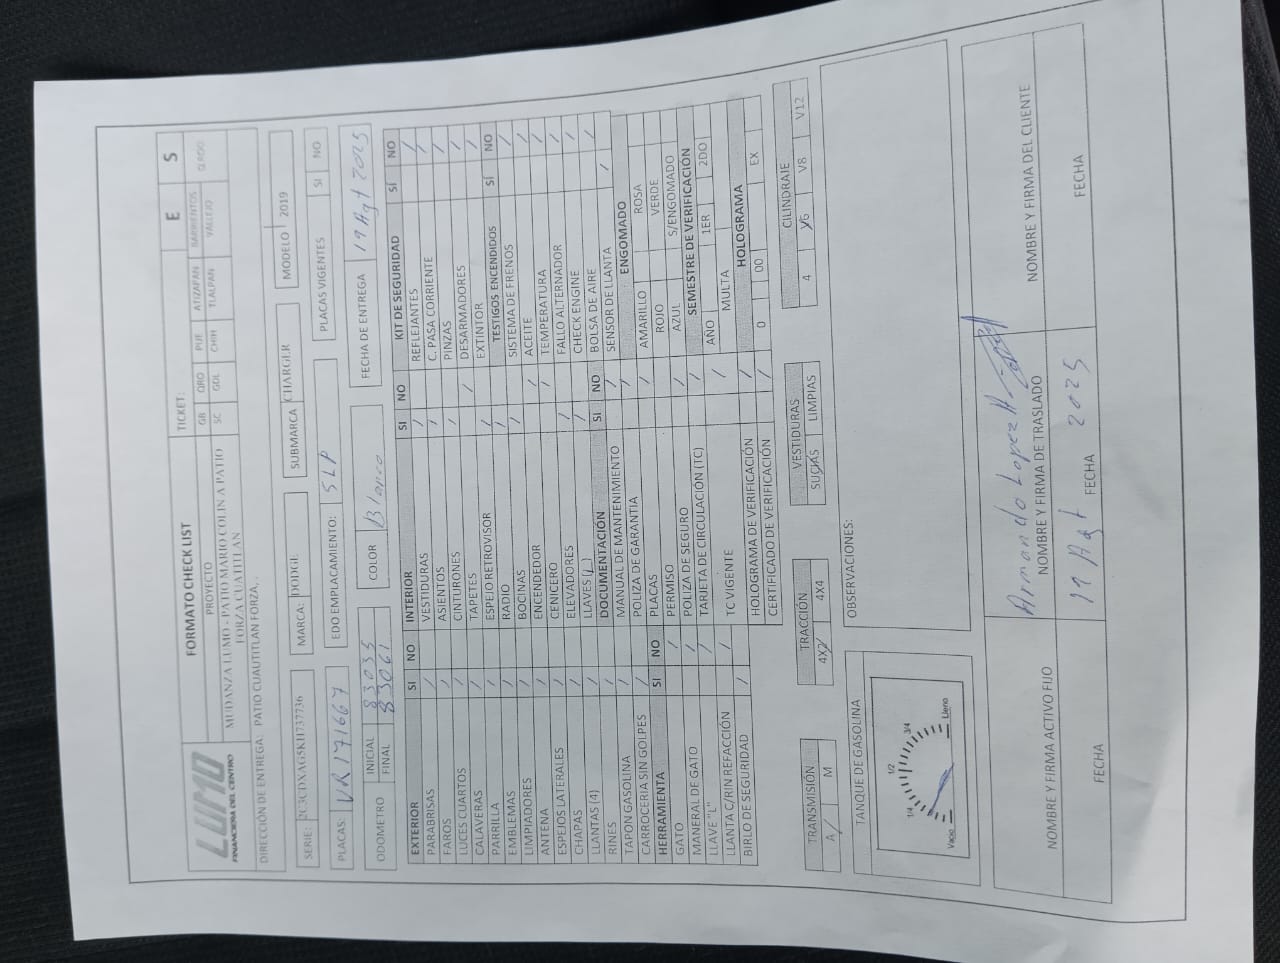 LUMO
FINANCIERA DEL CENTRO
FORMATO CHECK LIST
TICKET:
E S
PROYECTO
GB QRO PUE ATIZAPAN BARRIENTOS
SC GDL CHIH TLALPAN VALLEJO
MUDANZA LUMO - PATIO MARIO COLIN A PATIO
FORZA CUATITLAN
DIRECCIÓN DE ENTREGA: PATIO CUAUTITLAN FORZA..
SERIE: 2C3CDXAG5KH737736
MARCA: DODGE
SUBMARCA CHARGER
MODELO 2019
PLACAS: VR171667
EDO EMPLACAMIENTO: SLP
PLACAS VIGENTES SI NO
ODOMETRO INICIAL 83035
FINAL 83061
COLOR Blanco
FECHA DE ENTREGA 19 Agt 2025
EXTERIOR SI NO
PARABRISAS /
FAROS /
LUCES CUARTOS /
CALAVERAS /
PARRILLA /
EMBLEMAS /
LIMPIADORES /
ANTENA /
ESPEJOS LATERALES /
CHAPAS /
LLANTAS (4) /
RINES /
TAPON GASOLINA /
CARROCERIA SIN GOLPES /
HERRAMIENTA SI NO
GATO /
MANERAL DE GATO /
LLAVE "L" /
LLANTA C/RIN REFACCIÓN /
BIRLO DE SEGURIDAD /
INTERIOR SI NO
VESTIDURAS /
ASIENTOS /
CINTURONES /
TAPETES /
ESPEJO RETROVISOR /
RADIO /
BOCINAS /
ENCENDEDOR /
CENICERO /
ELEVADORES /
LLAVES (1) /
DOCUMENTACIÓN SI NO
MANUAL DE MANTENIMIENTO /
POLIZA DE GARANTIA /
PLACAS /
PERMISO
POLIZA DE SEGURO /
TARJETA DE CIRCULACIÓN (TC) /
TC VIGENTE /
HOLOGRAMA DE VERIFICACIÓN /
CERTIFICADO DE VERIFICACIÓN /
KIT DE SEGURIDAD SI NO
REFLEJANTES /
C. PASA CORRIENTE /
PINZAS /
DESARMADORES /
EXTINTOR /
TESTIGOS ENCENDIDOS SI NO
SISTEMA DE FRENOS /
ACEITE /
TEMPERATURA /
FALLO ALTERNADOR /
CHECK ENGINE /
BOLSA DE AIRE /
SENSOR DE LLANTA /
ENGOMADO
AMARILLO ROSA
ROJO VERDE
AZUL S/ENGOMADO
SEMESTRE DE VERIFICACIÓN
AÑO 1ER 2DO
MULTA
HOLOGRAMA
0 00 EX
TRANSMISIÓN
A/ M
TRACCIÓN
4X2/ 4X4
VESTIDURAS
SUCIAS LIMPIAS
CILINDRAJE
4 V6 V8 V12
TANQUE DE GASOLINA
Vacio 1/4 1/2 3/4 Lleno
OBSERVACIONES:
NOMBRE Y FIRMA ACTIVO FIJO
Armando Lopez H
NOMBRE Y FIRMA DE TRASLADO
NOMBRE Y FIRMA DEL CLIENTE
FECHA
19 Agt 2025
FECHA
FECHA